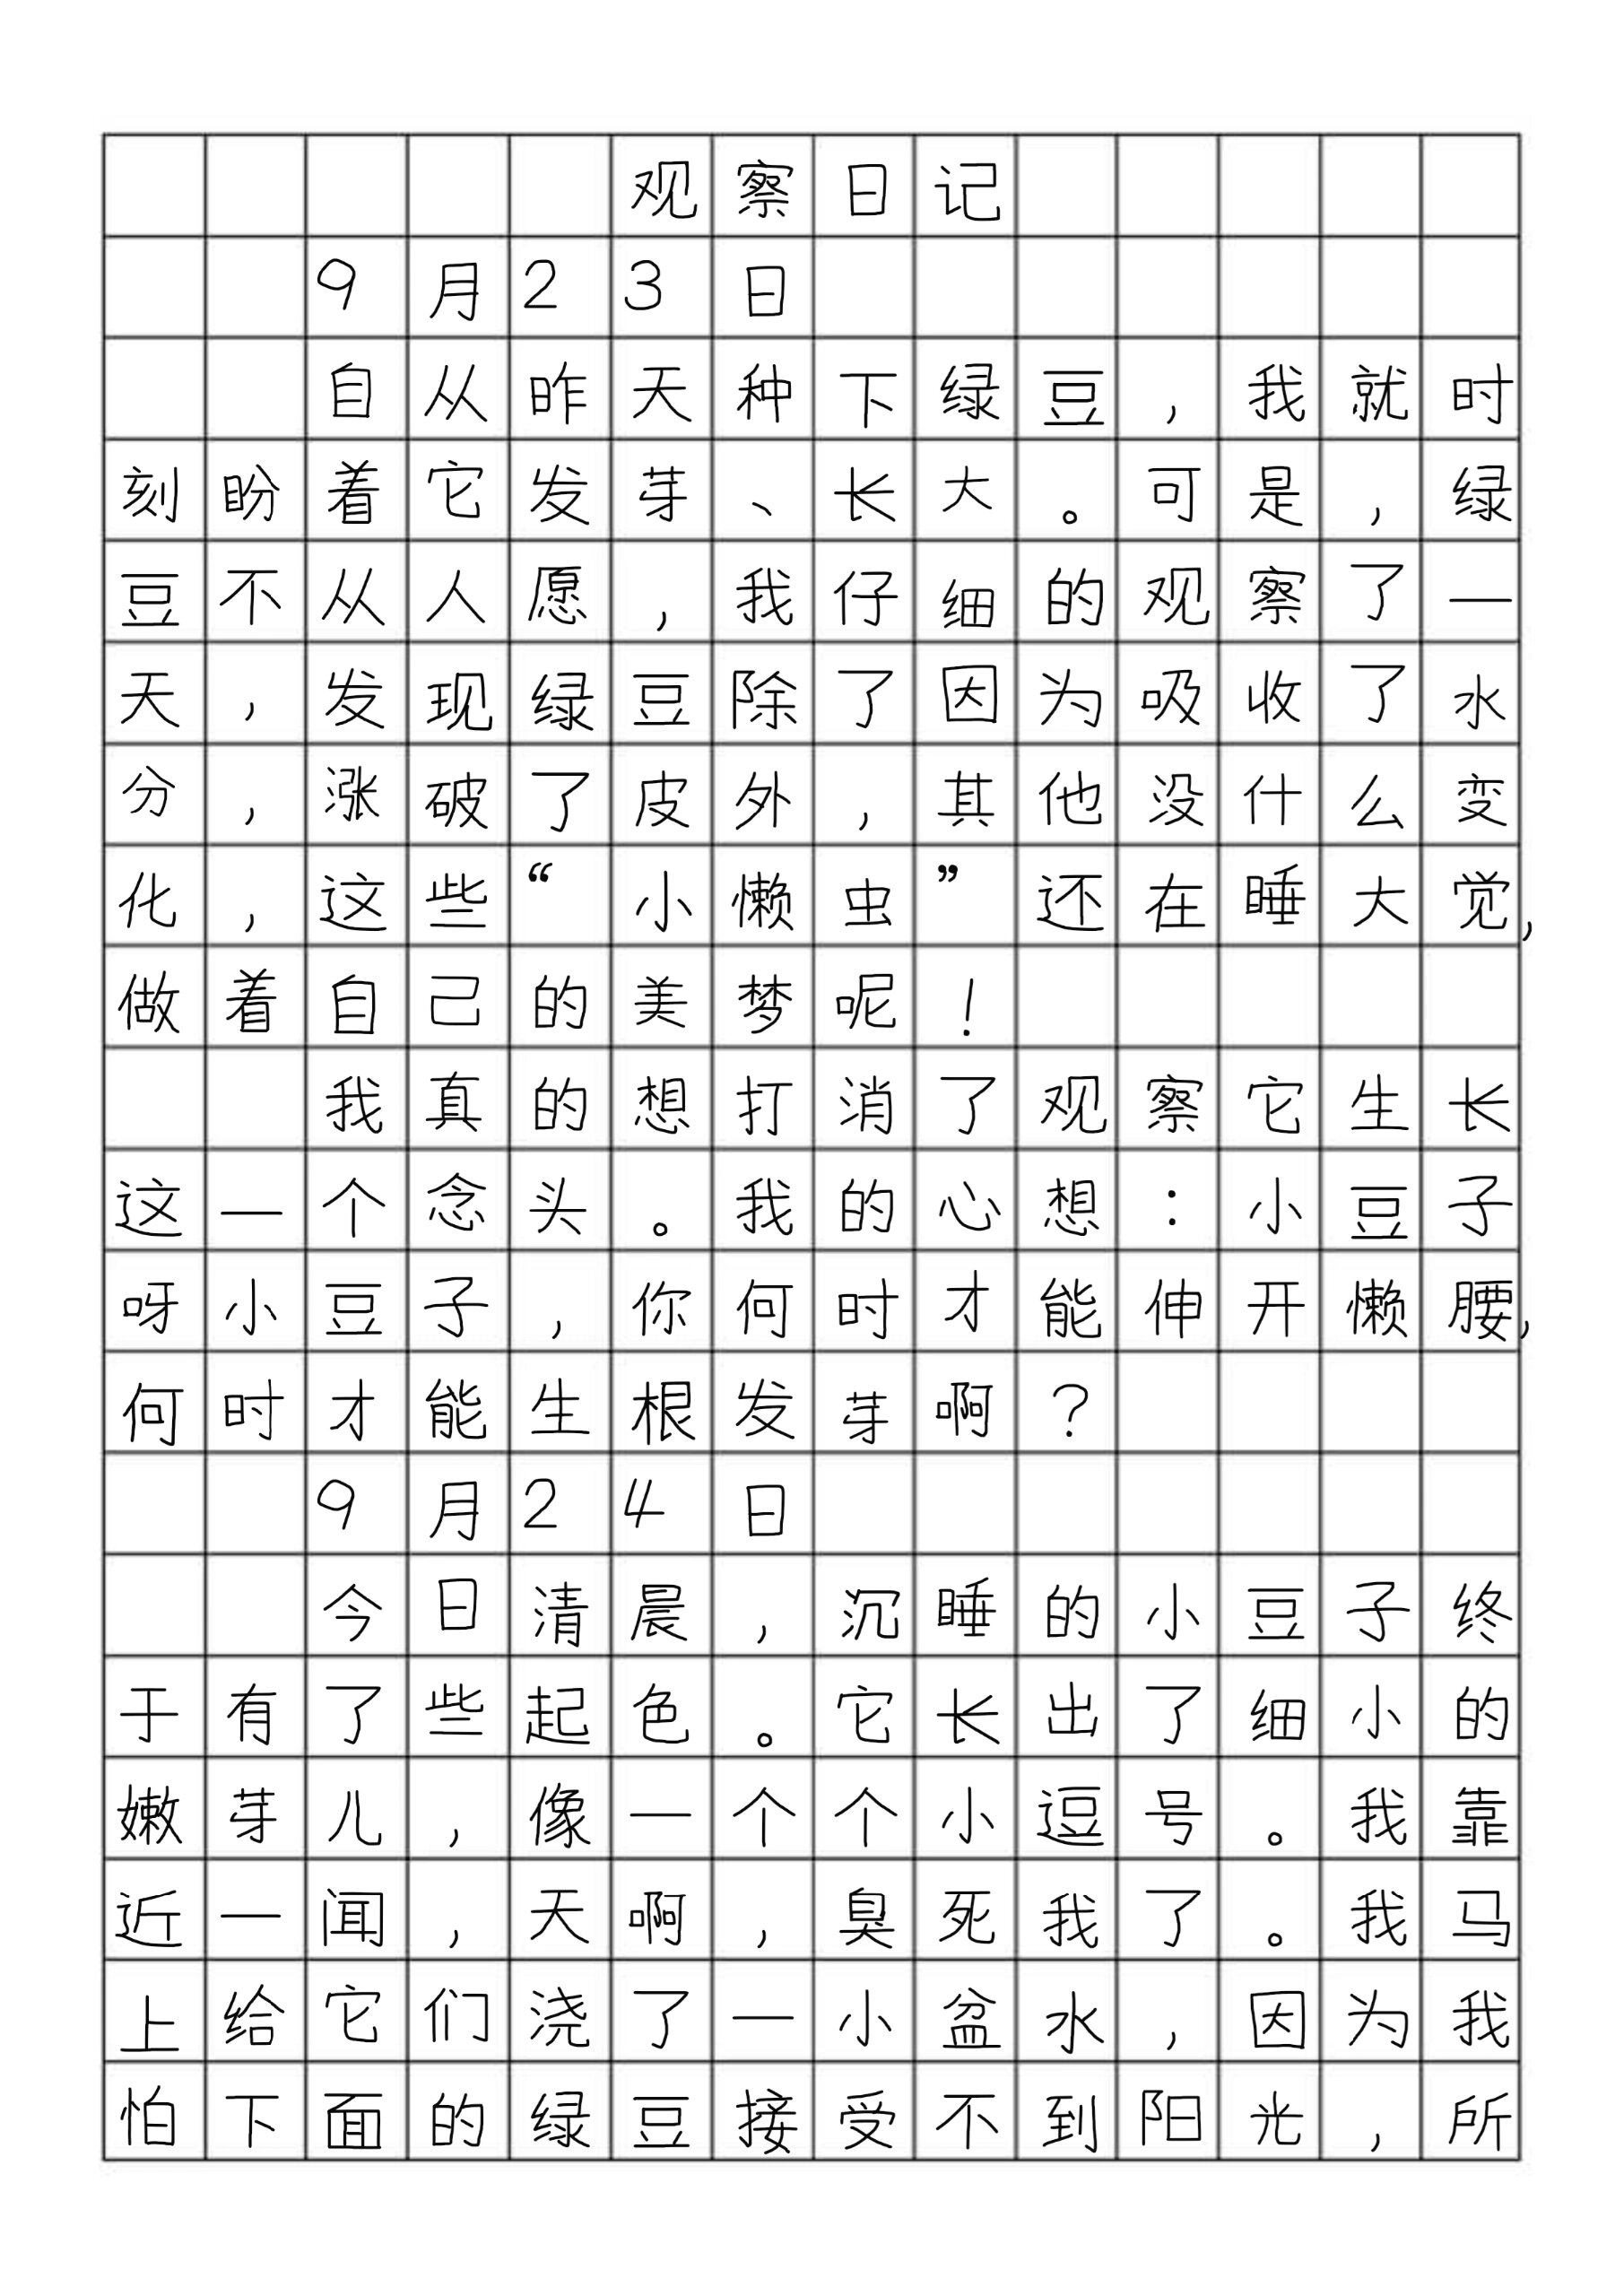 观察日记
9月23日
自从昨天种下绿豆，我就时
刻盼着它发芽、长大。可是，绿
豆不从人愿，我仔细的观察了一
天，发现绿豆除了因为吸收了水
分，涨破了皮外，其他没什么变
化，这些“小懒虫”还在睡大觉，
做着自己的美梦呢！
我真的想打消了观察它生长
这一个念头。我的心想：小豆子
呀小豆子，你何时才能伸开懒腰，
何时才能生根发芽啊？
9月24日
今日清晨，沉睡的小豆子终
于有了些起色。它长出了细小的
嫩芽儿，像一个个小逗号。我靠
近一闻，天啊，臭死我了。我马
上给它们浇了一小盆水，因为我
怕下面的绿豆接受不到阳光，所